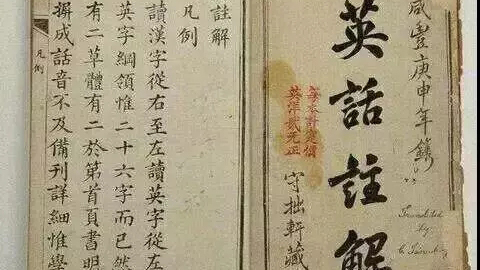 咸豐庚申年鐫
英話註解
Translated
by
每本計定價
英洋貳元正
守拙軒藏
註解
凡例
讀漢字從右至左讀英字從左
英字綱領惟二十六字而已然
有二草體有二於第首頁書明
撰成話音不及備刊詳細惟學
凡例